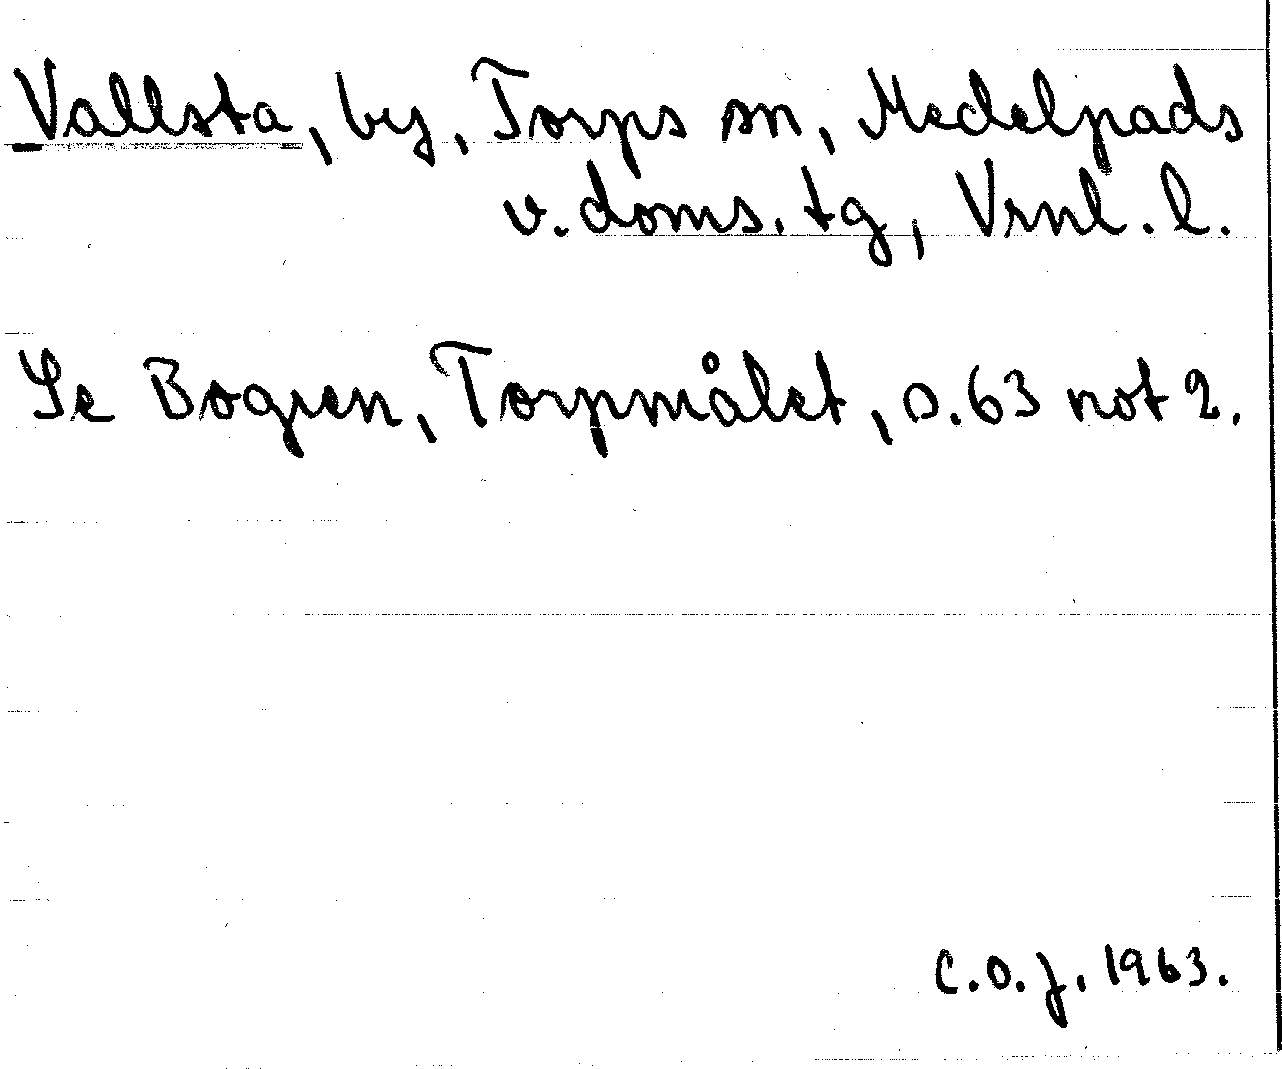 Vallsta, by, Torps sn, Medelpads
v. doms. tg, Vrnl. l.
Se Bogren, Torpmålet, s. 63 not 2.
C.O.J. 1963.